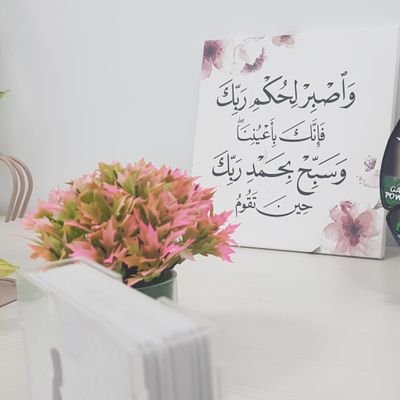 وَٱصْبِرْ لِحُكْمِ رَبِّكَ
فَإِنَّكَ بِأَعْيُنِنَا ۖ
وَسَبِّحْ بِحَمْدِ رَبِّكَ
حِينَ تَقُومُ